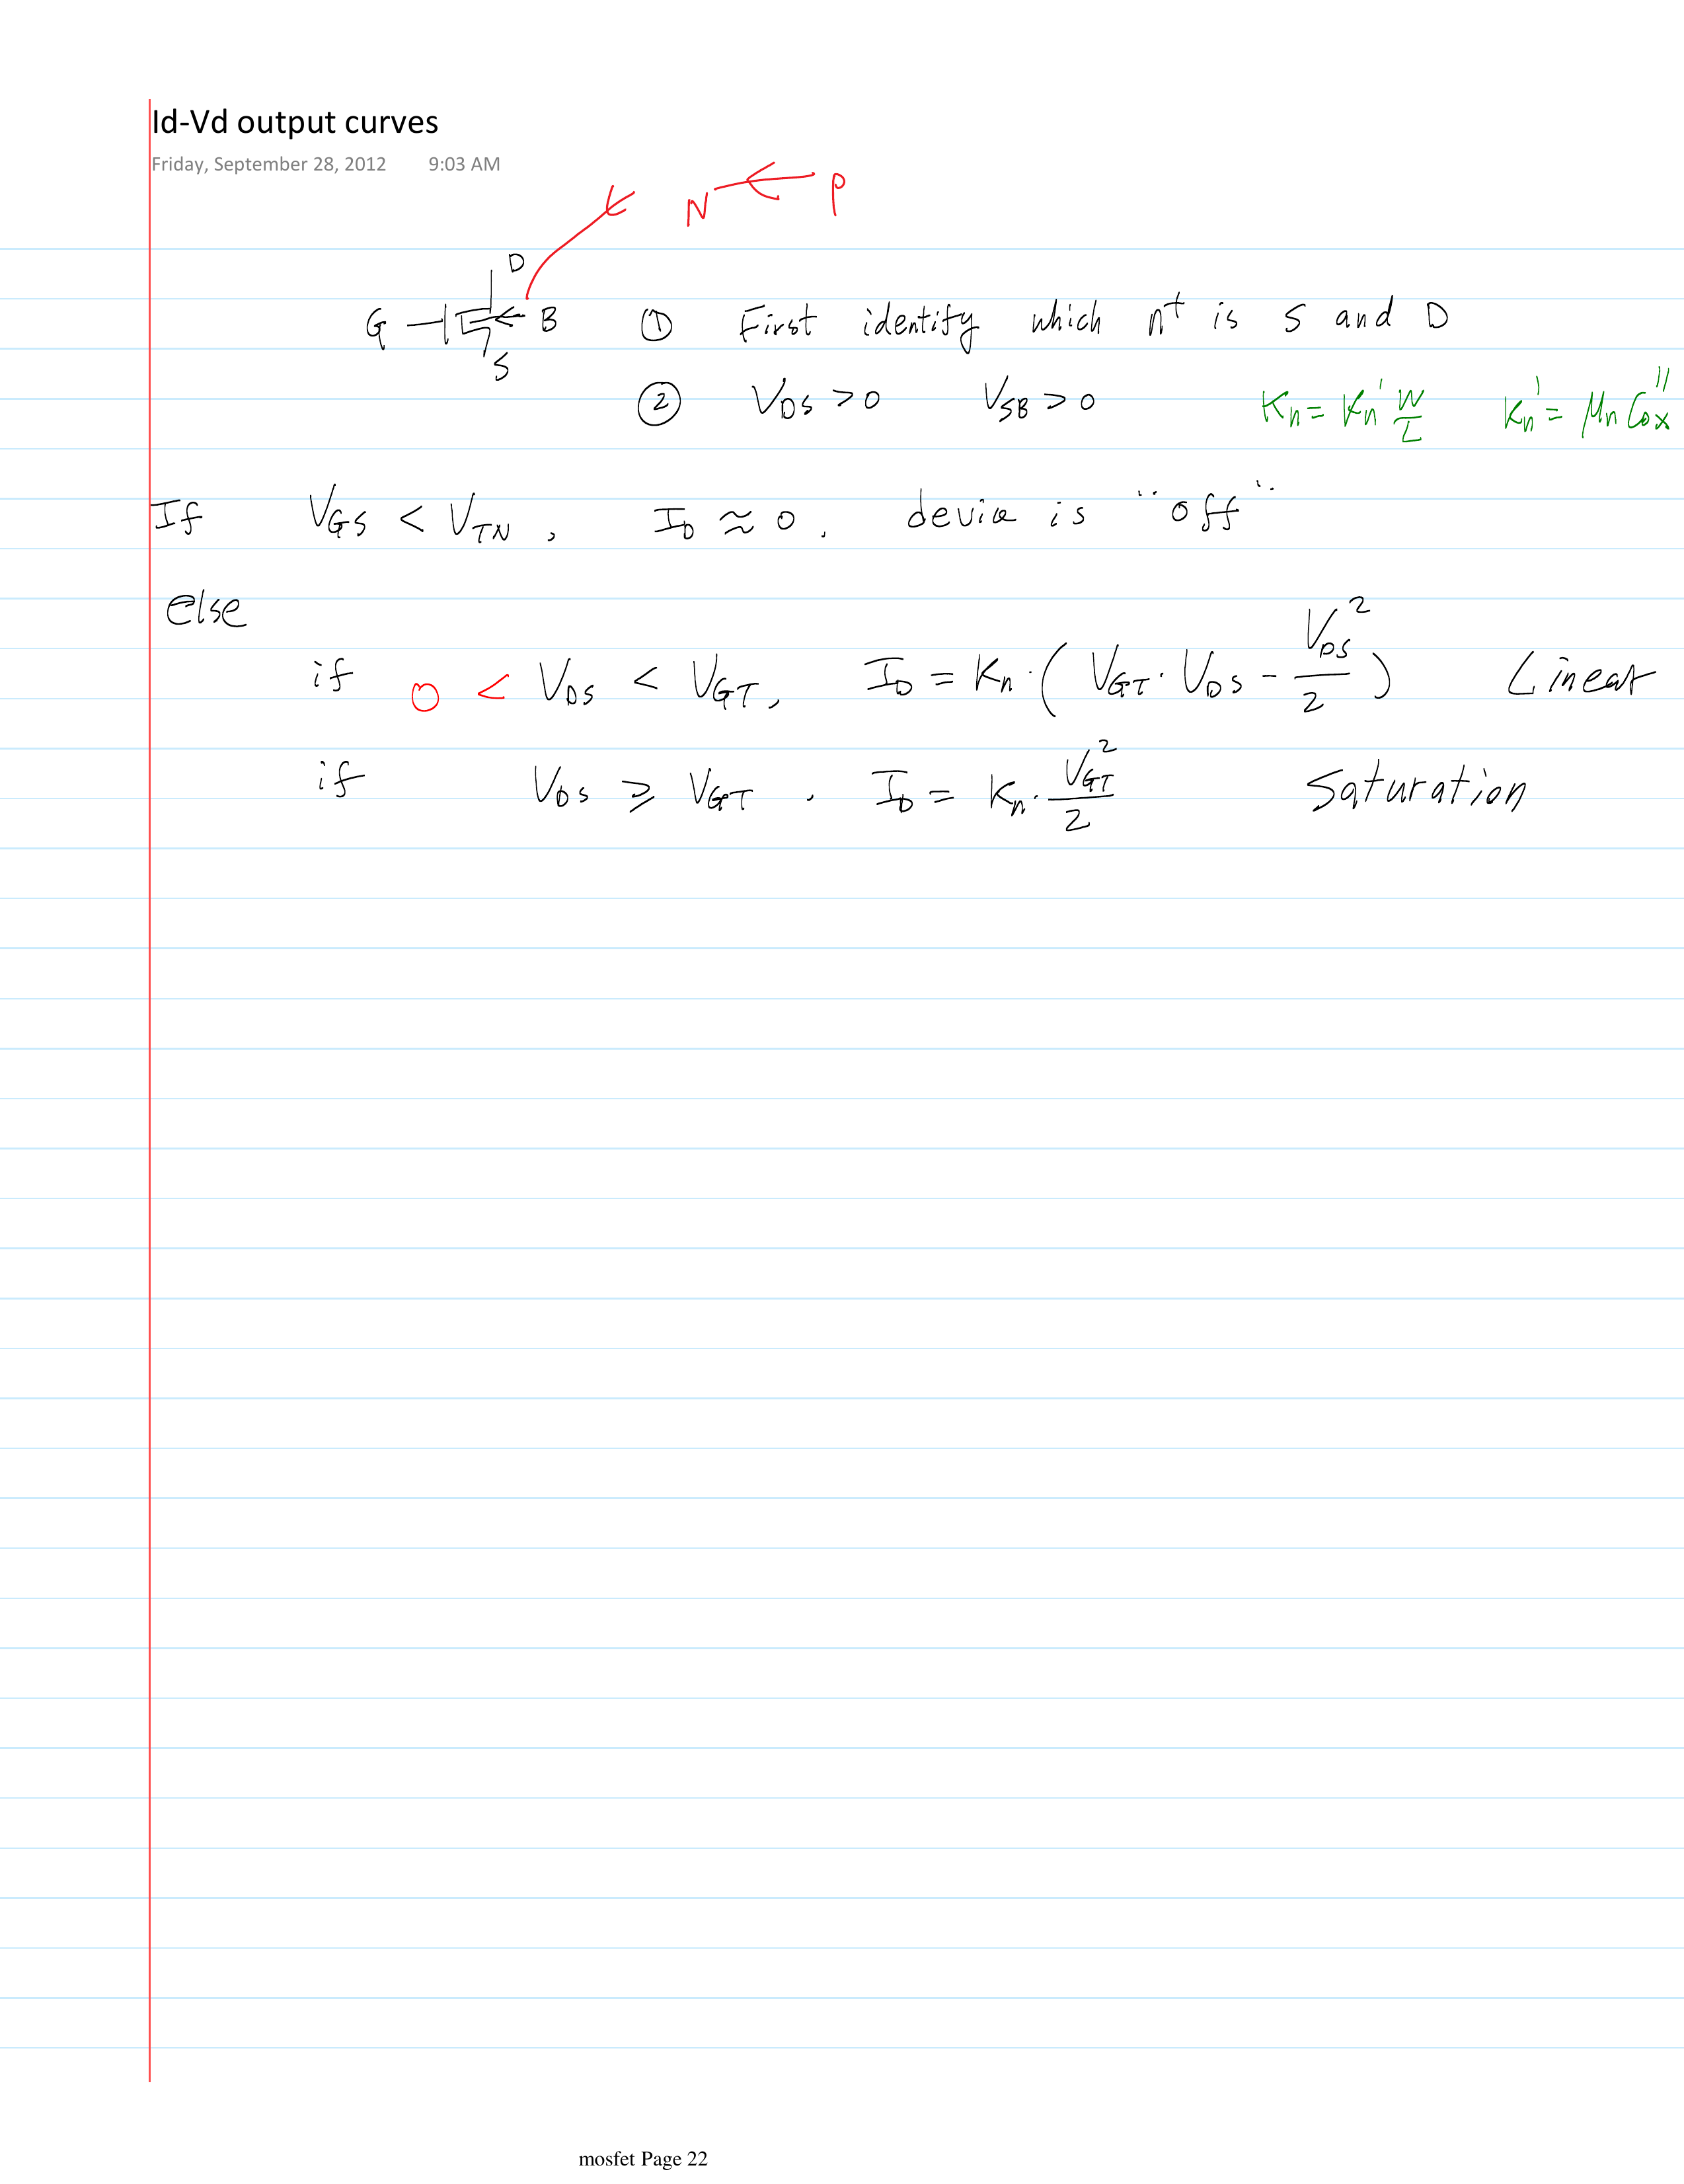 Id-Vd output curves
Friday, September 28, 2012 9:03 AM
N ← P
D
G B ① First identify which n⁺ is S and D
S
② V_DS > 0 V_SB > 0 K_n = K_n' W/L K_n' = μ_n C_ox''
If V_GS < V_TN, I_D ≈ 0, device is "off"
else
if 0 < V_DS < V_GT, I_D = K_n · (V_GT · V_DS - V_DS²/2) Linear
if V_DS ⩾ V_GT, I_D = K_n · V_GT²/2 Saturation
mosfet Page 22